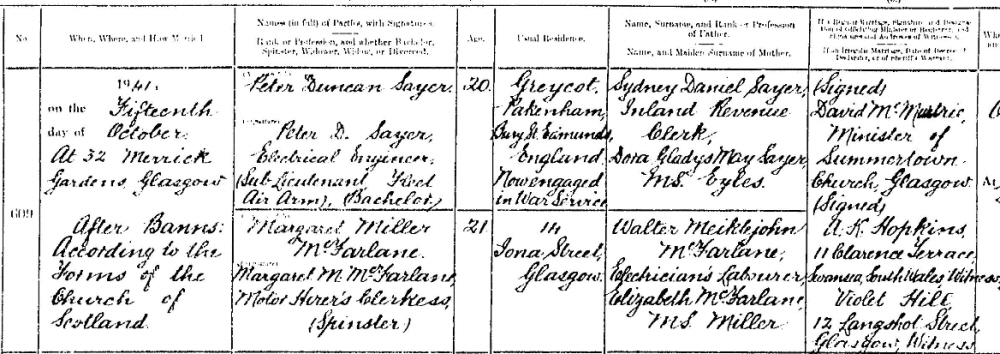 No.
When, Where, and How Married.
Names (in full) of Parties, with Signatures.
Rank or Profession, and whether Bachelor,
Spinster, Widower, Widow, or Divorced.
Age.
Usual Residence.
Name, Surname, and Rank or Profession
of Father.
Name, and Maiden Surname of Mother.
609
1941,
on the Fifteenth
day of October.
At 32 Merrick
Gardens, Glasgow
After Banns:
According to the
Forms of the
Church of
Scotland.
Peter Duncan Sayer.
Peter D. Sayer,
Electrical Engineer,
(Sub Lieutenant Fleet
Air Arm), (Bachelor)
20
Greycot,
Pakenham,
Bury St. Edmunds,
England
Now engaged
in War Service
Sydney Daniel Sayer,
Inland Revenue
Clerk,
Dora Gladys May Sayer,
M.S. Eyles.
(Signed)
David
Minister of
Summertown
Church, Glasgow
Margaret Miller
McFarlane.
Margaret M. McFarlane,
Motor Hirer's Clerkess,
(Spinster)
21
14
Iona Street,
Glasgow.
Walter Meiklejohn
McFarlane,
Electrician's Labourer,
Elizabeth McFarlane,
M.S. Miller
(Signed)
A. K. Hopkins,
11 Clarence Terrace,
Swansea, South Wales, Witness,
Violet Hill
12 Langshot Street,
Glasgow, Witness